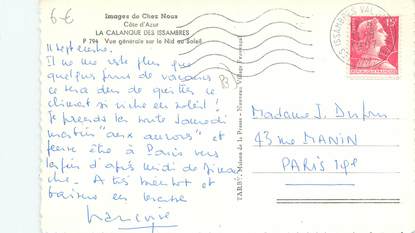 6 €
Images de Chez Nous
Côte d'Azur
LA CALANQUE DES ISSAMBRES
P 794 Vue générale sur le Nid au Soleil
11 septembre.
Il ne me reste plus que
quelques jours de vacances
ce sera dur de quitter ce
climat si riche en soleil !
Je prends la route samedi
matin "aux aurores" et
pense être à Paris vers
la fin d'après midi de diman
che. A très bientôt et
baisers en
Françoise
TARDY, Maison de la Presse - Nouveau Village Provençal
LES ISSAMBRES VAR
15F
Madame J. Dupin
43 rue MANIN
PARIS 19e